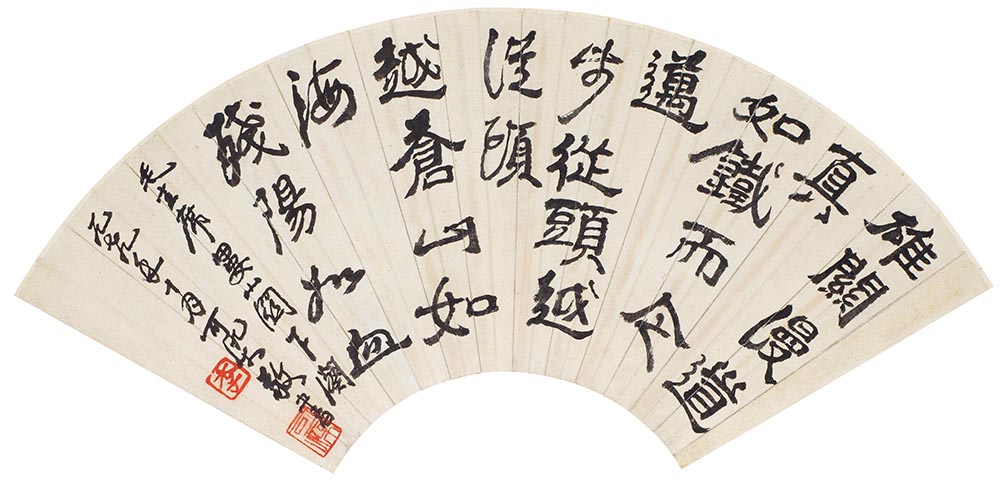 雄關漫道
真
如鐵而今
邁
步從頭越
從頭
越蒼山如
海
殘陽如血
毛主席婁山關下闋